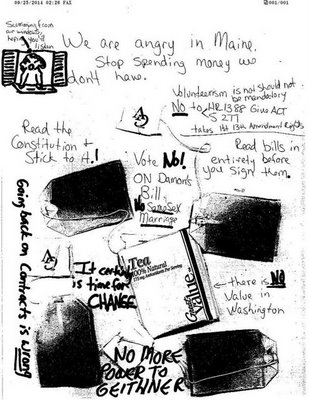 09/25/2014 02:28 FAX
001/001
Screaming from
our windows,
hoping you'll
listen
We are angry in Maine.
Stop spending money we
don't have.
Volunteerism is not should not
be mandatory
NO to HR 1388 Give ACT
S 277
takes 1st 13th Amendment Rights
Read the
Constitution &
Stick to it!
Vote No!
ON Damon's
Bill
No Same Sex
Marriage
Read bills in
entirety before
you sign them.
Going back on Contracts is wrong
It certainly
is time for
CHANGE
Tea
100% Natural
Antioxidants Per Serving
Great
Value
← there is NO
Value in
Washington
NO MORE
POWER TO
GEITHNER